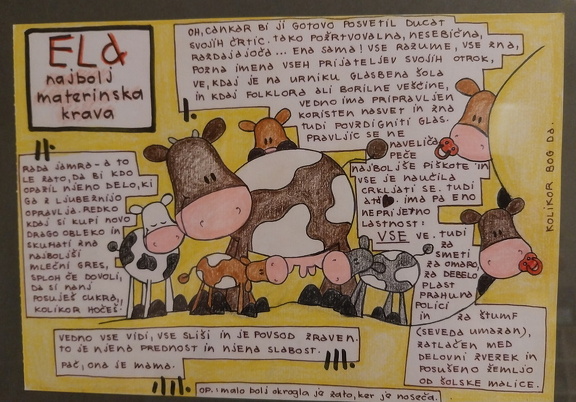 ELA
najbolj
materinska
krava
I.
OH, CANKAR BI JI GOTOVO POSVETIL DUCAT
SVOJIH ČRTIC. TAKO POŽRTVOVALNA, NESEBIČNA,
RAZDAJAJOČA... ENA SAMA! VSE RAZUME, VSE ZNA,
POZNA IMENA VSEH PRIJATELJEV SVOJIH OTROK,
VE, KDAJ JE NA URNIKU GLASBENA ŠOLA
IN KDAJ FOLKLORA ALI BORILNE VEŠČINE,
VEDNO IMA PRIPRAVLJEN
KORISTEN NASVET IN ZNA
TUDI POVZDIGNITI GLAS.
PRAVLJIC SE NE
NAVELIČA
PEČE
NAJBOLJŠE PIŠKOTE IN
VSE JE NAUČILA
CRKLJATI SE. TUDI
IMA PA ENO
NEPRIJETNO
LASTNOST:
VSE VE. TUDI
ZA
SMETI
ZA OMARO,
ZA DEBELO
PLAST
PRAHU NA
POLICI
IN ZA ŠTUMF
(SEVEDA UMAZAN),
ZATLAČEN MED
DELOVNI ZVEZEK IN
POSUŠENO ŽEMLJO
OD ŠOLSKE MALICE.
II.
RADA JAMRA - A TO
LE ZATO, DA BI KDO
OPAZIL NJENO DELO, KI
GA Z LJUBEZNIJO
OPRAVLJA. REDKO
KDAJ SI KUPI NOVO
DRAGO OBLEKO IN
SKUHATI ZNA
NAJBOLJŠI
MLEČNI GRES,
SPLOH ČE DOVOLI,
DA SI NANJ
POSUJEŠ CUKRA,
KOLIKOR HOČEŠ.
VEDNO VSE VIDI, VSE SLIŠI IN JE POVSOD ZRAVEN.
TO JE NJENA PREDNOST IN NJENA SLABOST.
PAČ, ONA JE MAMA.
III.
IIII.
OP.: malo bolj okrogla je zato, ker je noseča.
KOLIKOR BOG DA.